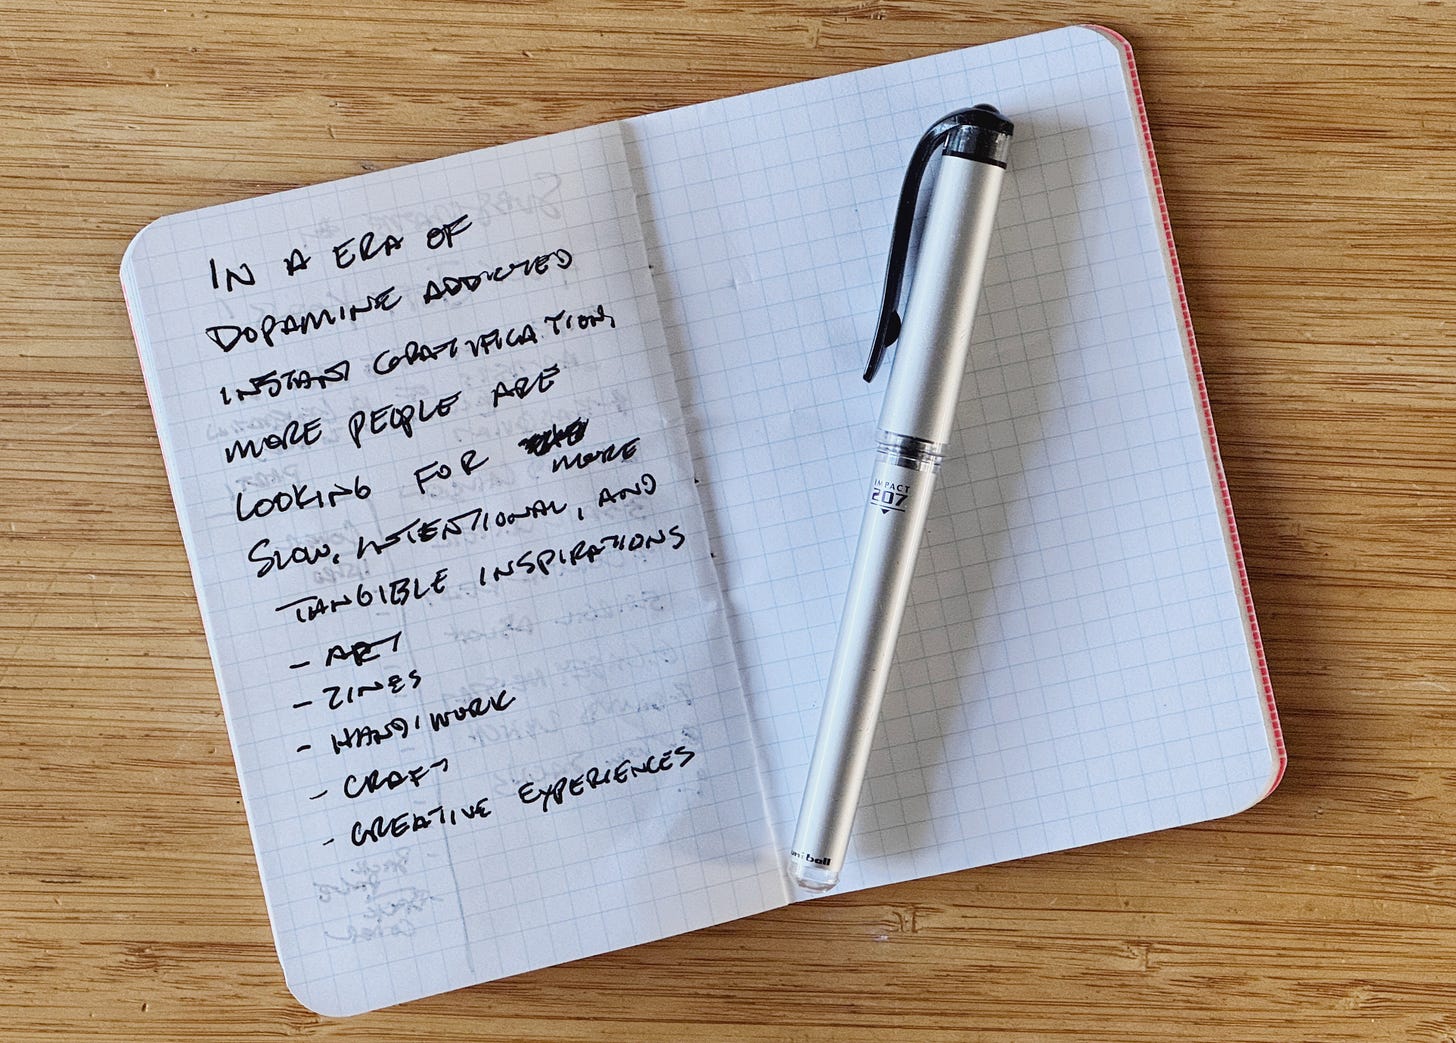 IN A ERA OF
DOPAMINE ADDICTED
INSTANT GRATIFICATION,
MORE PEOPLE ARE
LOOKING FOR
MORE
SLOW, INTENTIONAL, AND
TANGIBLE INSPIRATIONS
- ART
- ZINES
- HANDIWORK
- CRAFT
- CREATIVE EXPERIENCES
IMPACT
207
uni ball